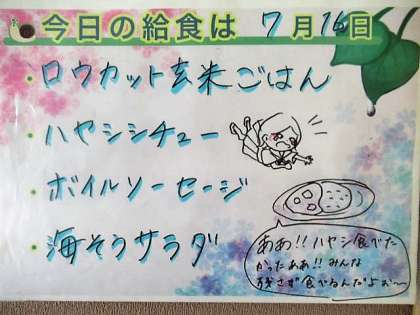 今日の給食は 7月16日
・ロウカット玄米ごはん
・ハヤシシチュー
・ボイルソーセージ
・海そうサラダ
ああ!!ハヤシ食べた
かったああ!!みんな
残さず食べるんだよぉ〜